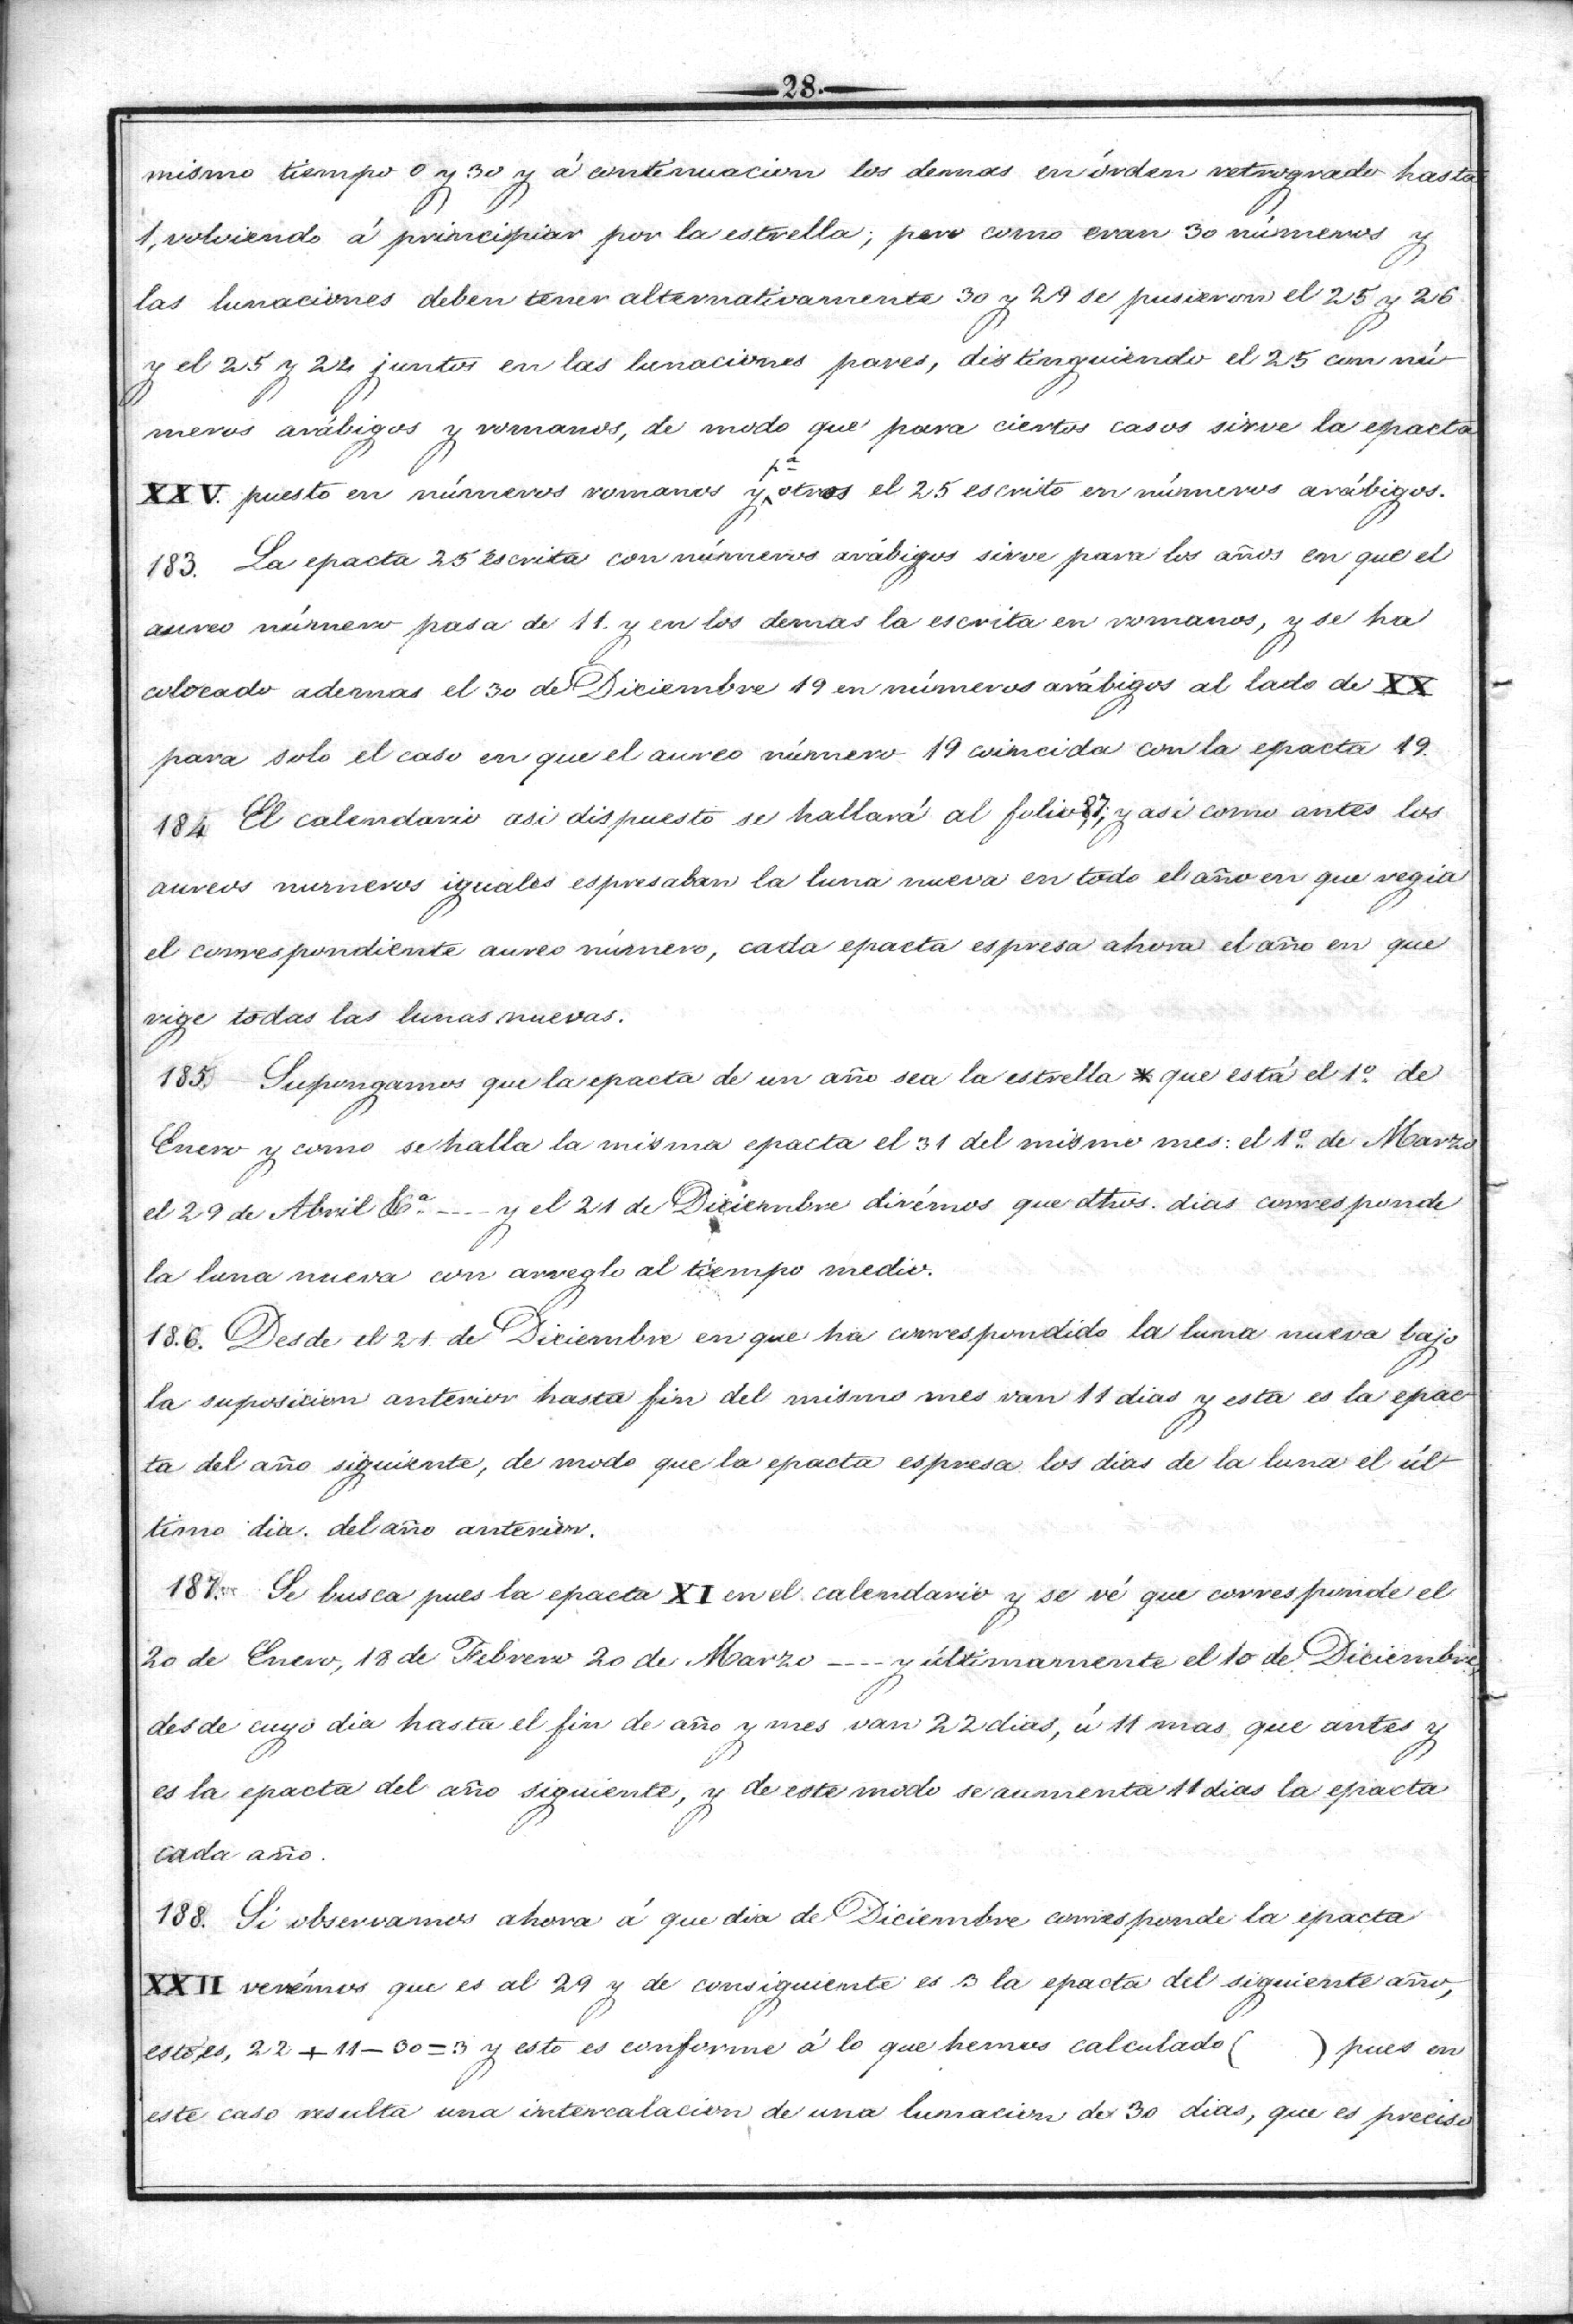 28.
mismo tiempo 0 y 30 y á continuacion los demas en órden retrogrado hasta
1, volviendo á principiar por la estrella; pero como eran 30 números y
las lunaciones deben tener alternativamente 30 y 29 se pusieron el 25 y 26
y el 25 y 24 juntos en las lunaciones pares, distinguiendo el 25 con nú-
meros arábigos y romanos, de modo que para ciertos casos sirve la epacta
XXV. puesto en números romanos y pª otros el 25 escrito en números arábigos.
183. La epacta 25 escrita con números arábigos sirve para los años en que el
aureo número pasa de 11. y en los demas la escrita en romanos, y se ha
colocado ademas el 30 de Diciembre 19 en números arábigos al lado de XX
para solo el caso en que el aureo número 19 coincida con la epacta 19.
184 El calendario asi dispuesto se hallará al folio 87; y asi como antes los
aureos numeros iguales espresaban la luna nueva en todo el año en que regia
el correspondiente aureo número, cada epacta espresa ahora el año en que
rige todas las lunas nuevas.
185. Supongamos que la epacta de un año sea la estrella * que está el 1º de
Enero y como se halla la misma epacta el 31 del mismo mes: el 1º de Marzo
el 29 de Abril &ª ---- y el 21 de Diciembre dirémos que dthos. dias corresponde
la luna nueva con arreglo al tiempo medio.
18.6. Desde el 21 de Diciembre en que ha correspondido la luna nueva bajo
la suposicion anterior hasta fin del mismo mes van 11 dias y esta es la epac-
ta del año siguiente, de modo que la epacta espresa los dias de la luna el úl-
timo dia. del año anterior.
187. Se busca pues la epacta XI en el calendario y se vé que corresponde el
20 de Enero, 18 de Febrero 20 de Marzo ---- y últimamente el 10 de Diciembre,
desde cuyo dia hasta el fin de año y mes van 22 dias, ú 11 mas que antes y
es la epacta del año siguiente, y de este modo se aumenta 11 dias la epacta
cada año.
188. Si observamos ahora á que dia de Diciembre corresponde la epacta
XXII verémos que es al 29 y de consiguiente es 3 la epacta del siguiente año,
esto es, 22 + 11 - 30 = 3 y esto es conforme á lo que hemos calculado ( ) pues en
este caso resulta una intercalacion de una lunacion de 30 dias, que es preciso